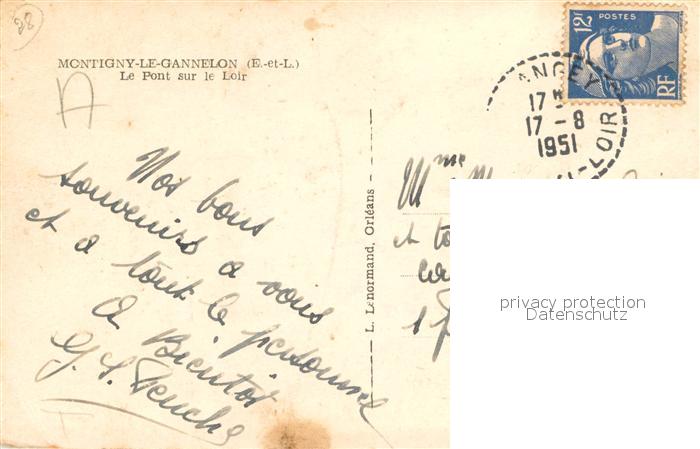 28
MONTIGNY-LE-GANNELON (E.-et-L.)
Le Pont sur le Loir
Nos bons
souvenirs a vous
et a tout le personnel
A Bientot
L. Lenormand, Orléans -
12F POSTES
RF
17
17 - 8
1951
LOIR
Mme
et
1
privacy protection
Datenschutz